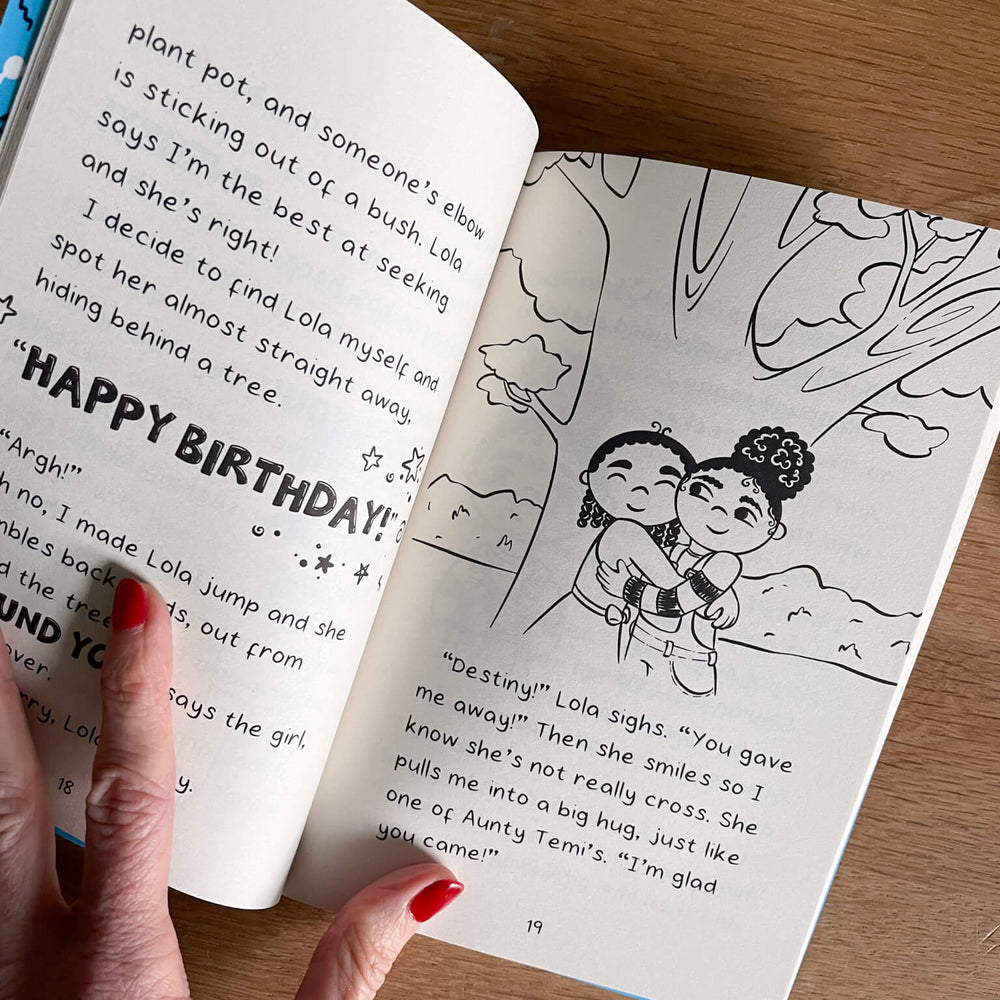 plant pot, and someone's elbow
is sticking out of a bush. Lola
says I'm the best at seeking
and she's right!
I decide to find Lola myself and
spot her almost straight away,
hiding behind a tree.
“HAPPY BIRTHDAY!”
“Argh!”
no, I made Lola jump and she
out from
the
says the girl,
over.
Lola
18
“Destiny!” Lola sighs. “You gave
me away!” Then she smiles so I
know she's not really cross. She
pulls me into a big hug, just like
one of Aunty Temi's. “I'm glad
you came!”
19